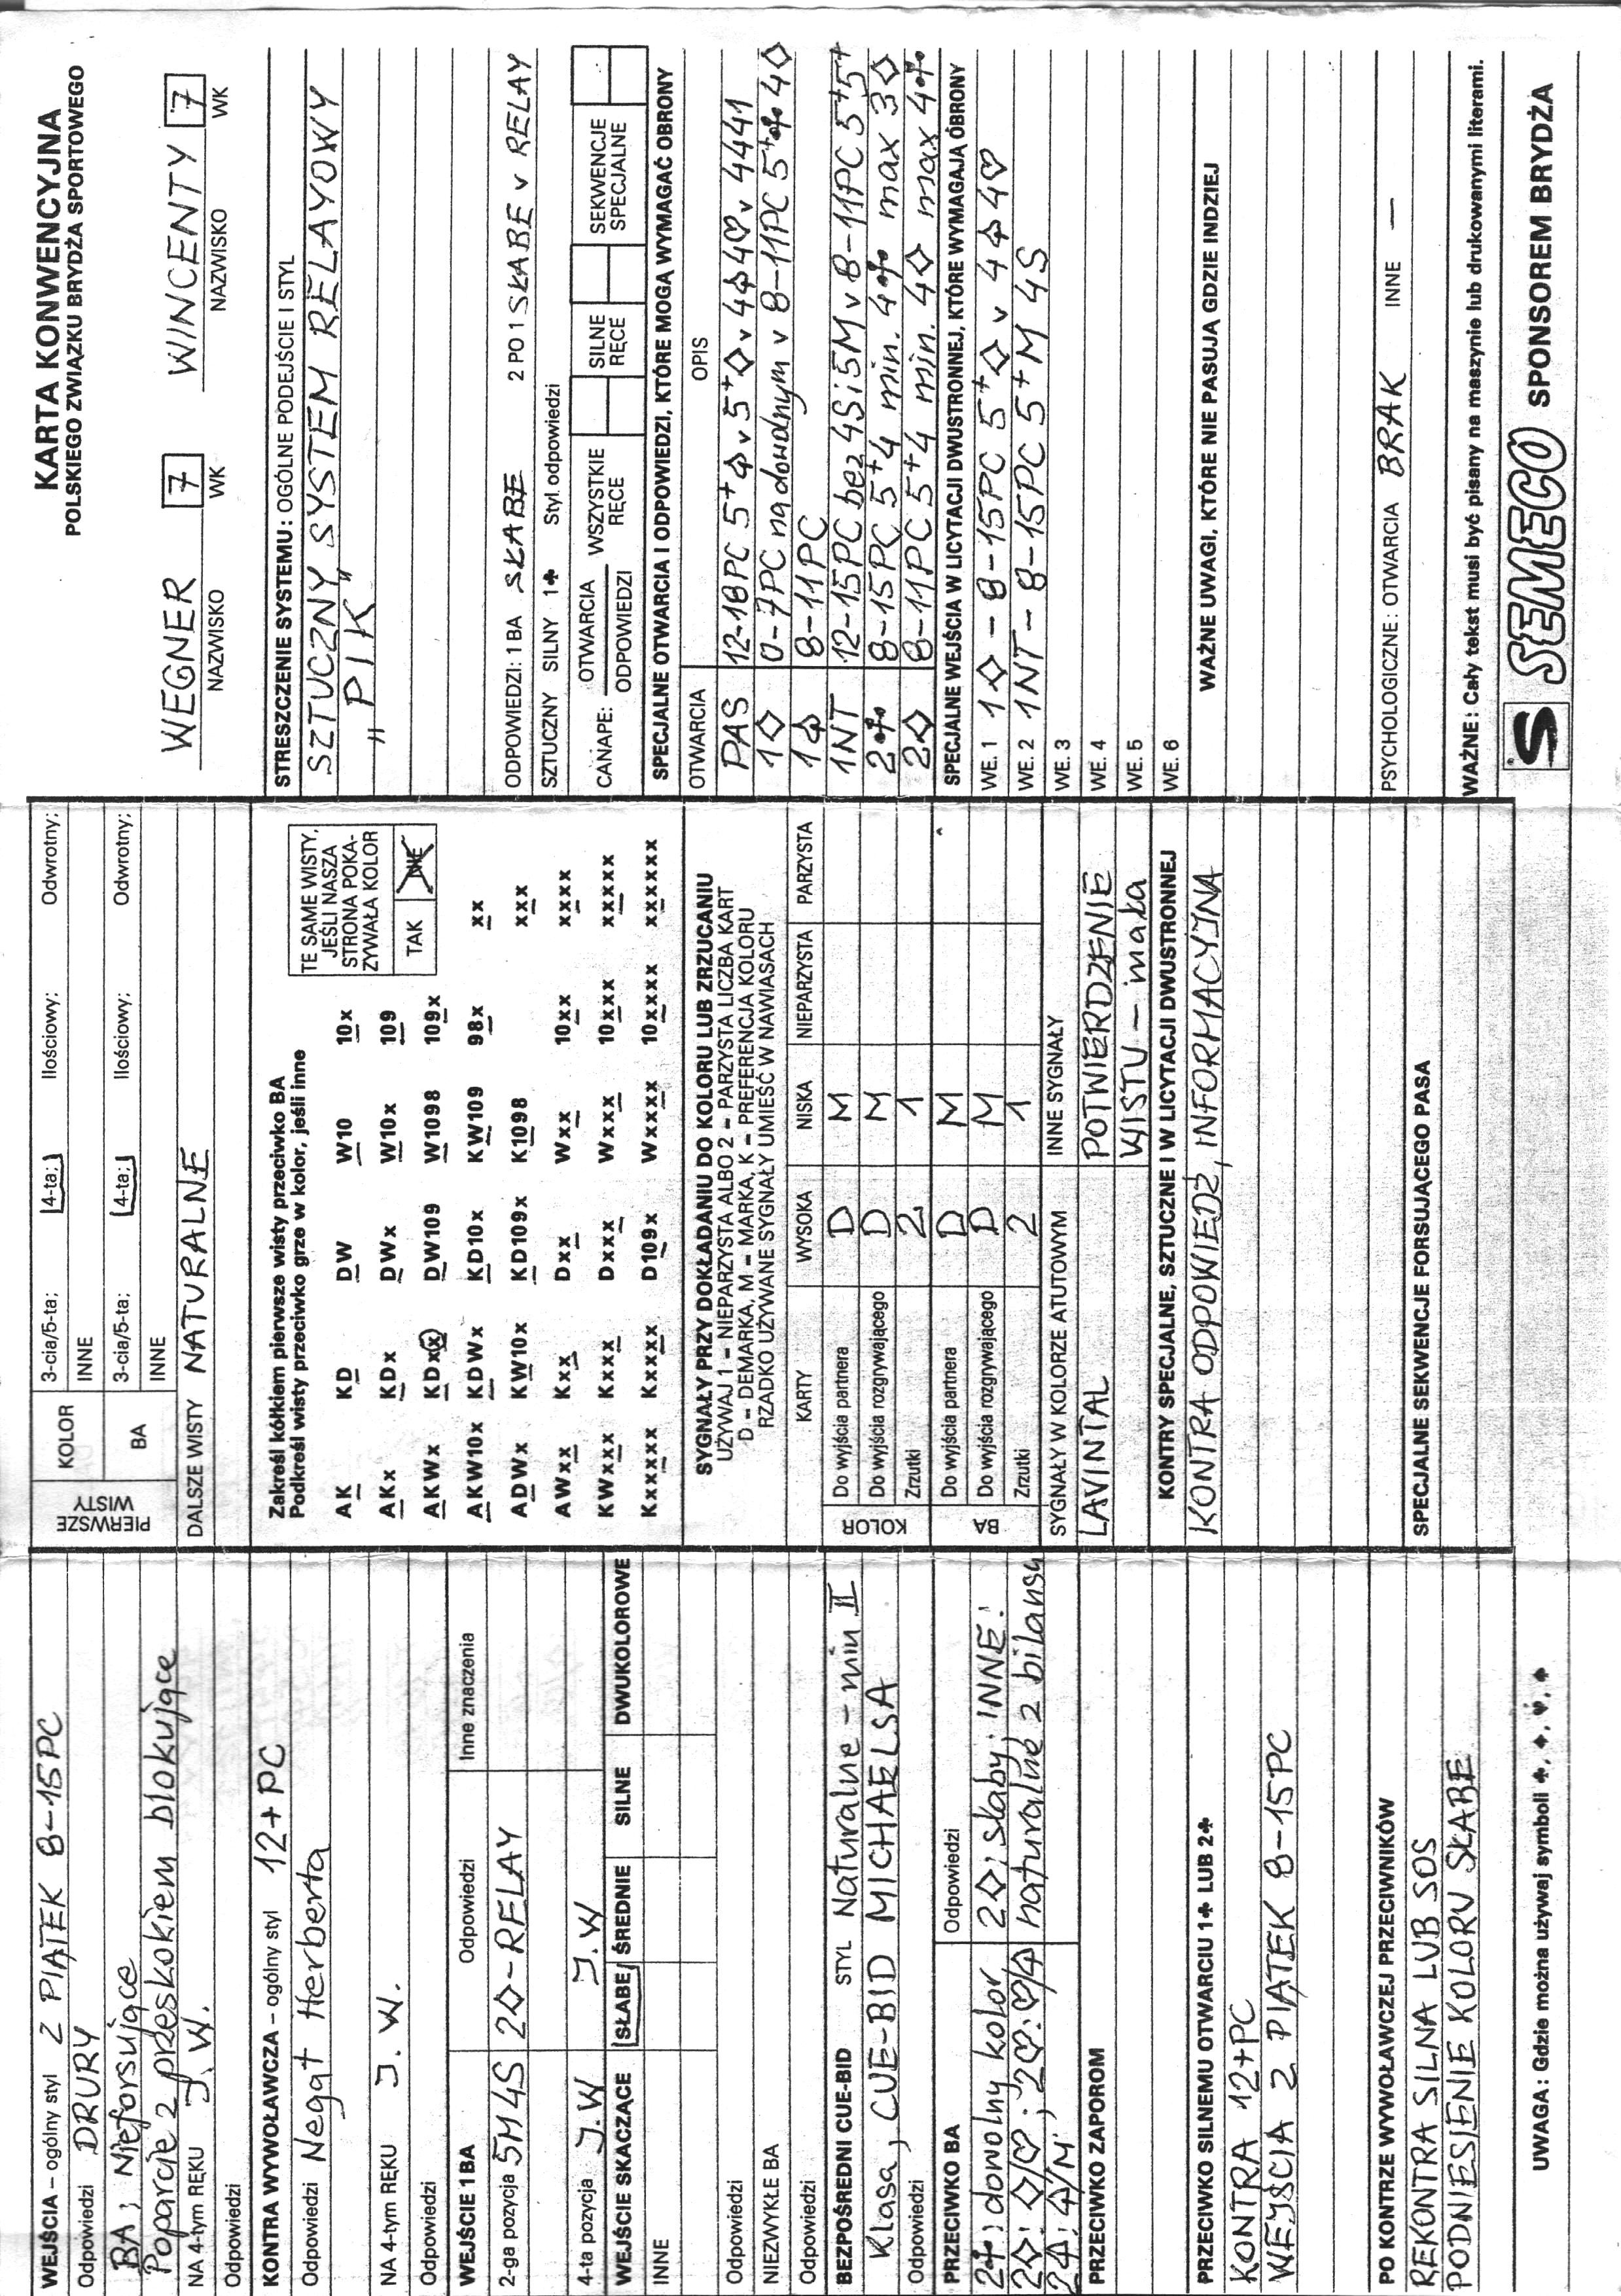 KARTA KONWENCYJNA
POLSKIEGO ZWIĄZKU BRYDŻA SPORTOWEGO
WEGNER 7 WINCENTY 7
NAZWISKO WK NAZWISKO WK
STRESZCZENIE SYSTEMU: OGÓLNE PODEJŚCIE I STYL
SZTUCZNY SYSTEM RELAYOWY
"PIK"
ODPOWIEDZI: 1 BA SŁABE 2 PO 1 SŁABE v RELAY
SZTUCZNY SILNY 1♣ Styl odpowiedzi
CANAPE: OTWARCIA WSZYSTKIE RĘCE SILNE RĘCE SEKWENCJE SPECJALNE
ODPOWIEDZI
SPECJALNE OTWARCIA I ODPOWIEDZI, KTÓRE MOGĄ WYMAGAĆ OBRONY
OTWARCIA OPIS
PAS 12-18PC 5+♤ v 5+♢ v 4♤4♡ v 4441
1♢ 0-7PC na dowolnym v 8-11PC 5+♣ 4♢
1♤ 8-11PC
1NT 12-15PC bez 4S i 5M v 8-11PC 5+5+
2♣ 8-15PC 5+4 min. 4♣ max 3♢
2♢ 8-11PC 5+4 min. 4♢ max 4♣
SPECJALNE WEJŚCIA W LICYTACJI DWUSTRONNEJ, KTÓRE WYMAGAJĄ OBRONY
WE. 1 1♢ - 8-15PC 5+♢ v 4♤4♡
WE. 2 1NT - 8-15PC 5+M 4S
WE. 3
WE. 4
WE. 5
WE. 6
WAŻNE UWAGI, KTÓRE NIE PASUJĄ GDZIE INDZIEJ
PSYCHOLOGICZNE: OTWARCIA BRAK INNE —
WAŻNE: Cały tekst musi być pisany na maszynie lub drukowanymi literami.
S SEMECO SPONSOREM BRYDŻA
PIERWSZE WISTY
KOLOR 3-cia/5-ta; 4-ta; Ilościowy; Odwrotny;
INNE
BA 3-cia/5-ta; 4-ta; Ilościowy; Odwrotny;
INNE
DALSZE WISTY NATURALNE
Zakreśl kółkiem pierwsze wisty przeciwko BA
Podkreśl wisty przeciwko grze w kolor, jeśli inne
TE SAME WISTY, JEŚLI NASZA STRONA POKAZYWAŁA KOLOR
TAK NIE
AK KD DW W10 10x
AKx KDx DWx W10x 109
AKWx KDxx DW109 W1098 109x
AKW10x KDWx KD10x KW109 98x xx
ADWx KW10x KD109x K1098 xxx
AWxx Kxx Dxx Wxx 10xx xxxx
KWxxx Kxxx Dxxx Wxxx 10xxx xxxxx
Kxxxxx Kxxxx D109x Wxxxx 10xxxx xxxxxx
SYGNAŁY PRZY DOKŁADANIU DO KOLORU LUB ZRZUCANIU
UŻYWAJ 1 - NIEPARZYSTA ALBO 2 - PARZYSTA LICZBA KART
D - DEMARKA, M - MARKA, K - PREFERENCJA KOLORU
RZADKO UŻYWANE SYGNAŁY UMIEŚĆ W NAWIASACH
KARTY WYSOKA NISKA NIEPARZYSTA PARZYSTA
KOLOR
Do wyjścia partnera D M
Do wyjścia rozgrywającego D M
Zrzutki 2 1
BA
Do wyjścia partnera D M
Do wyjścia rozgrywającego D M
Zrzutki 2 1
SYGNAŁY W KOLORZE ATUTOWYM INNE SYGNAŁY
LAVINTAL POTWIERDZENIE
WISTU - mała
KONTRY SPECJALNE, SZTUCZNE I W LICYTACJI DWUSTRONNEJ
KONTRA ODPOWIEDŹ, INFORMACYJNA
SPECJALNE SEKWENCJE FORSUJĄCEGO PASA
WEJŚCIA - ogólny styl Z PIĄTEK 8-15PC
Odpowiedzi DRURY
BA; Nieforsujące
Poparcie z przeskokiem blokujące
NA 4-tym RĘKU J.W.
Odpowiedzi
KONTRA WYWOŁAWCZA - ogólny styl 12+PC
Odpowiedzi Negat Herberta
NA 4-tym RĘKU J.W.
Odpowiedzi
WEJŚCIE 1 BA Odpowiedzi Inne znaczenia
2-ga pozycja 5M4S 2♢-RELAY
4-ta pozycja J.W J.W
WEJŚCIE SKACZĄCE SŁABE ŚREDNIE SILNE DWUKOLOROWE
INNE
Odpowiedzi
NIEZWYKŁE BA
Odpowiedzi
BEZPOŚREDNI CUE-BID STYL Naturalne - min II
Klasa, CUE-BID MICHAELSA
Odpowiedzi
PRZECIWKO BA Odpowiedzi
2♣: dowolny kolor 2♢; słaby; INNE:
2♢: ♢/♡; 2♡: ♡/♤ naturalne z bilansu
2♤: ♤/M
PRZECIWKO ZAPOROM
PRZECIWKO SILNEMU OTWARCIU 1♣ LUB 2♣
KONTRA 12+PC
WEJŚCIA Z PIĄTEK 8-15PC
PO KONTRZE WYWOŁAWCZEJ PRZECIWNIKÓW
REKONTRA SILNA LUB SOS
PODNIESIENIE KOLORU SŁABE
UWAGA: Gdzie można używaj symboli ♣, ♦, ♥, ♠